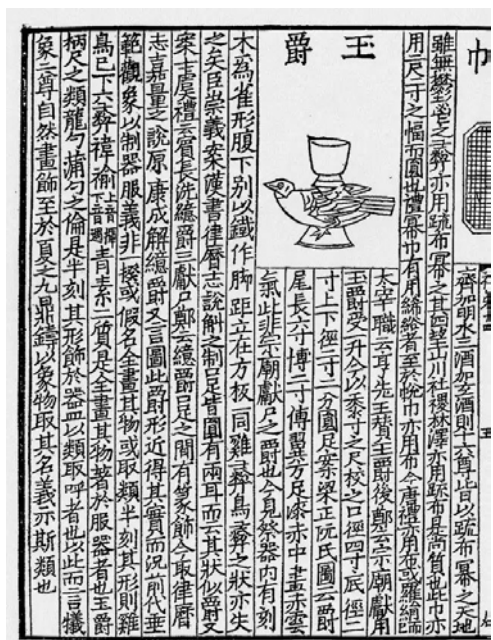 巾
齊加明水三酒加玄酒則十六尊皆以疏布冪之天地
雖無鬱鬯之彝亦用疏布冪之其四望山川社稷林澤亦用疏布是尚質也此巾亦
用二尺二寸之幅而圓也禮冪巾有用綌絺者至於帨巾亦用布今唐禮亦用布或羅絹
玉爵
太宰職云享先王贊玉爵後鄭云宗廟獻用
玉爵受一升今以黍寸之尺校之口徑四寸底徑二
寸上下徑二寸二分圓足案梁正阮氏圖云爵
尾長六寸博二寸傅翼方足漆赤中畫赤雲
氣此非宗廟獻尸之爵也今見祭器內有刻
木為雀形腹下別以鐵作脚距立在方板一同雞彝鳥彝之狀亦失
之矣臣崇義案漢書律曆志說斛之制口足皆圓有兩耳而云其狀似爵又
案士虞禮云賓長洗繶爵三獻尸鄭云繶爵口足之間有篆飾今取律曆
志嘉量之說原康成解繶爵又言圖此爵形近得其實而況前代垂
範觀象以制器服義非一揆或假名全畫其物或取類半刻其形則雞
鳥已下六彝褘褕上音揮下音遙青素二質是全畫其物著於服器者也玉爵
柄尺之類龍勺蒲勺之倫是半刻其形飾於器皿以類取呼者也以此而言犧
象二尊自然畫飾至於夏之九鼎鑄以象物取其名義亦斯類也